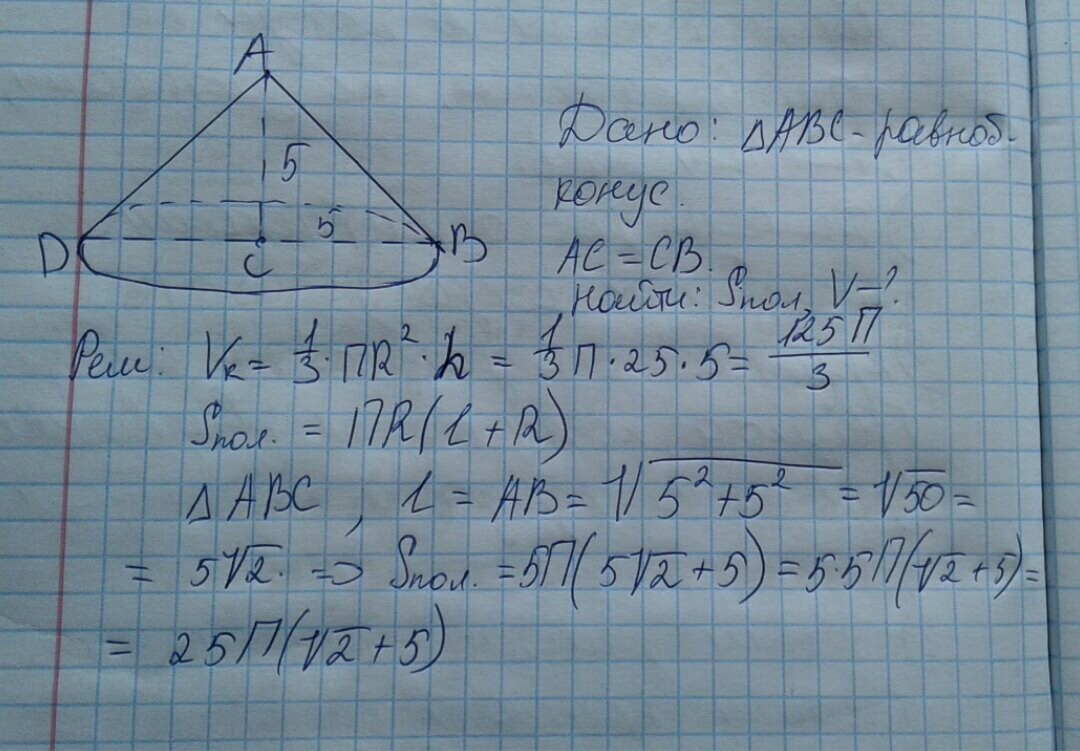 A
5
5
D
C
B
Дано: △ABC - равноб.
конус.
AC = CB.
Найти: Sпол, V-?
Реш: Vк = 1/3 · ПR² · h = 1/3 П · 25 · 5 = 125П/3
Sпол. = ПR(l + R)
△ABC, l = AB = √(5² + 5²) = √50 =
= 5√2. => Sпол. = 5П(5√2 + 5) = 5·5П(√2 + 5) =
= 25П(√2 + 5)